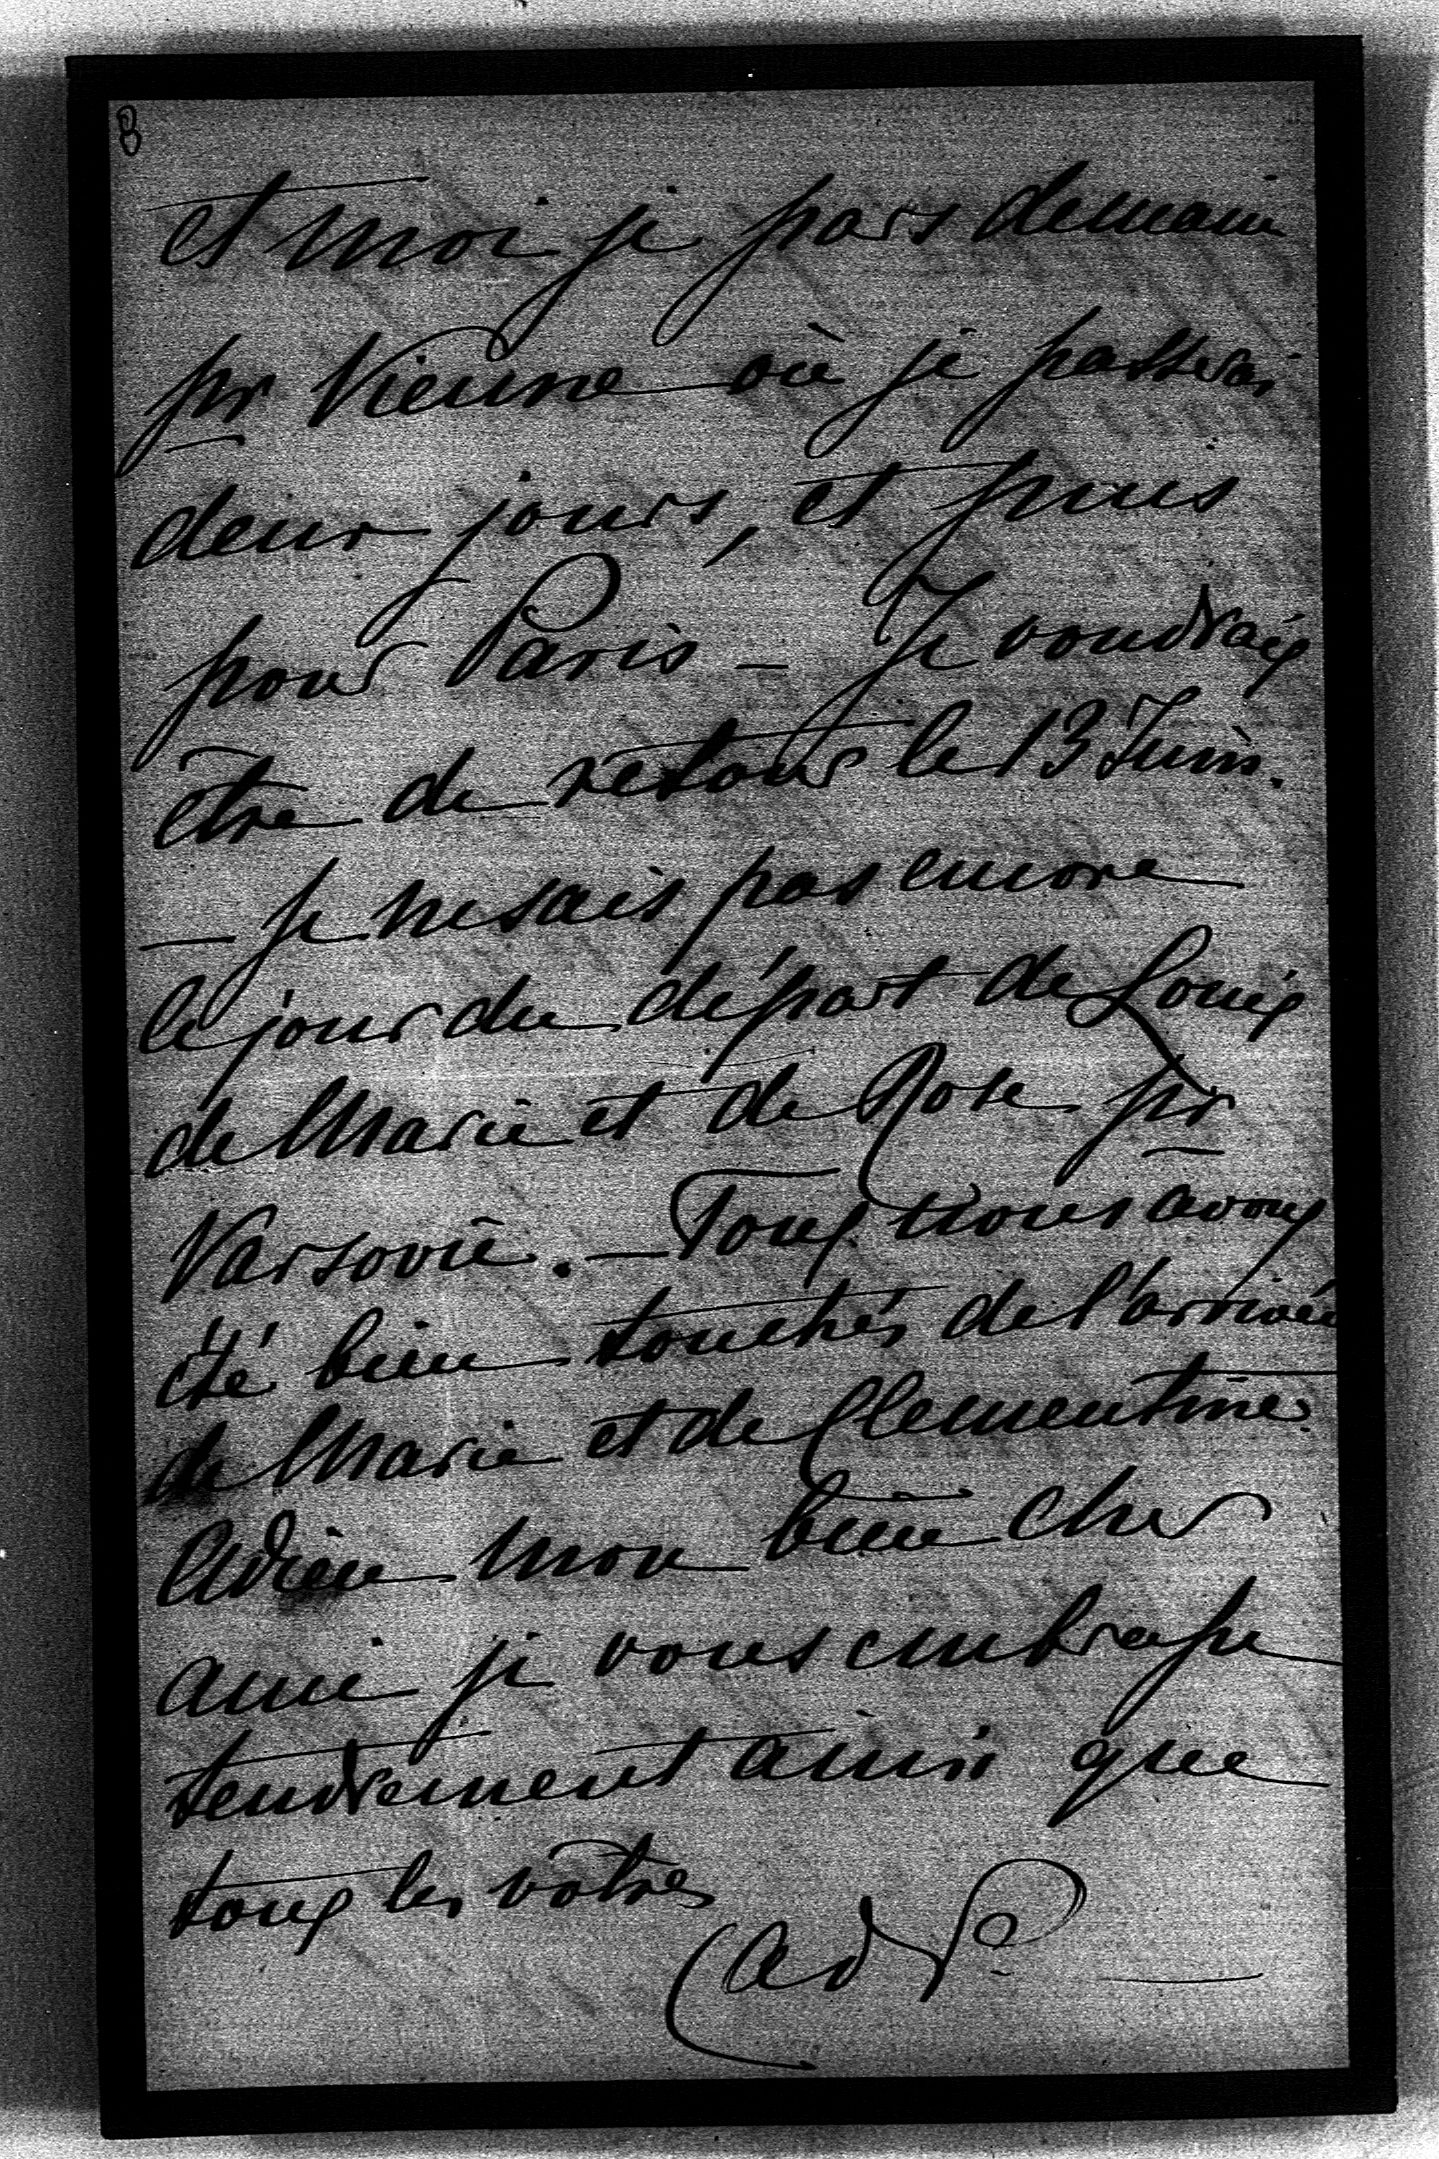 8
et moi je pars demain
pr Vienne où je passerai
deux jours, et puis
pour Paris – Je voudrais
être de retour le 13 Juin.
– Je ne sais pas encore
le jour du départ de Louis
de Marie et de Rose pr
Varsovie. – Tous nous avons
été bien touchés de l'arrivée
de Marie et de Clementine
Adieu mon bien cher
ami je vous embrasse
tendrement ainsi que
tous les vôtres